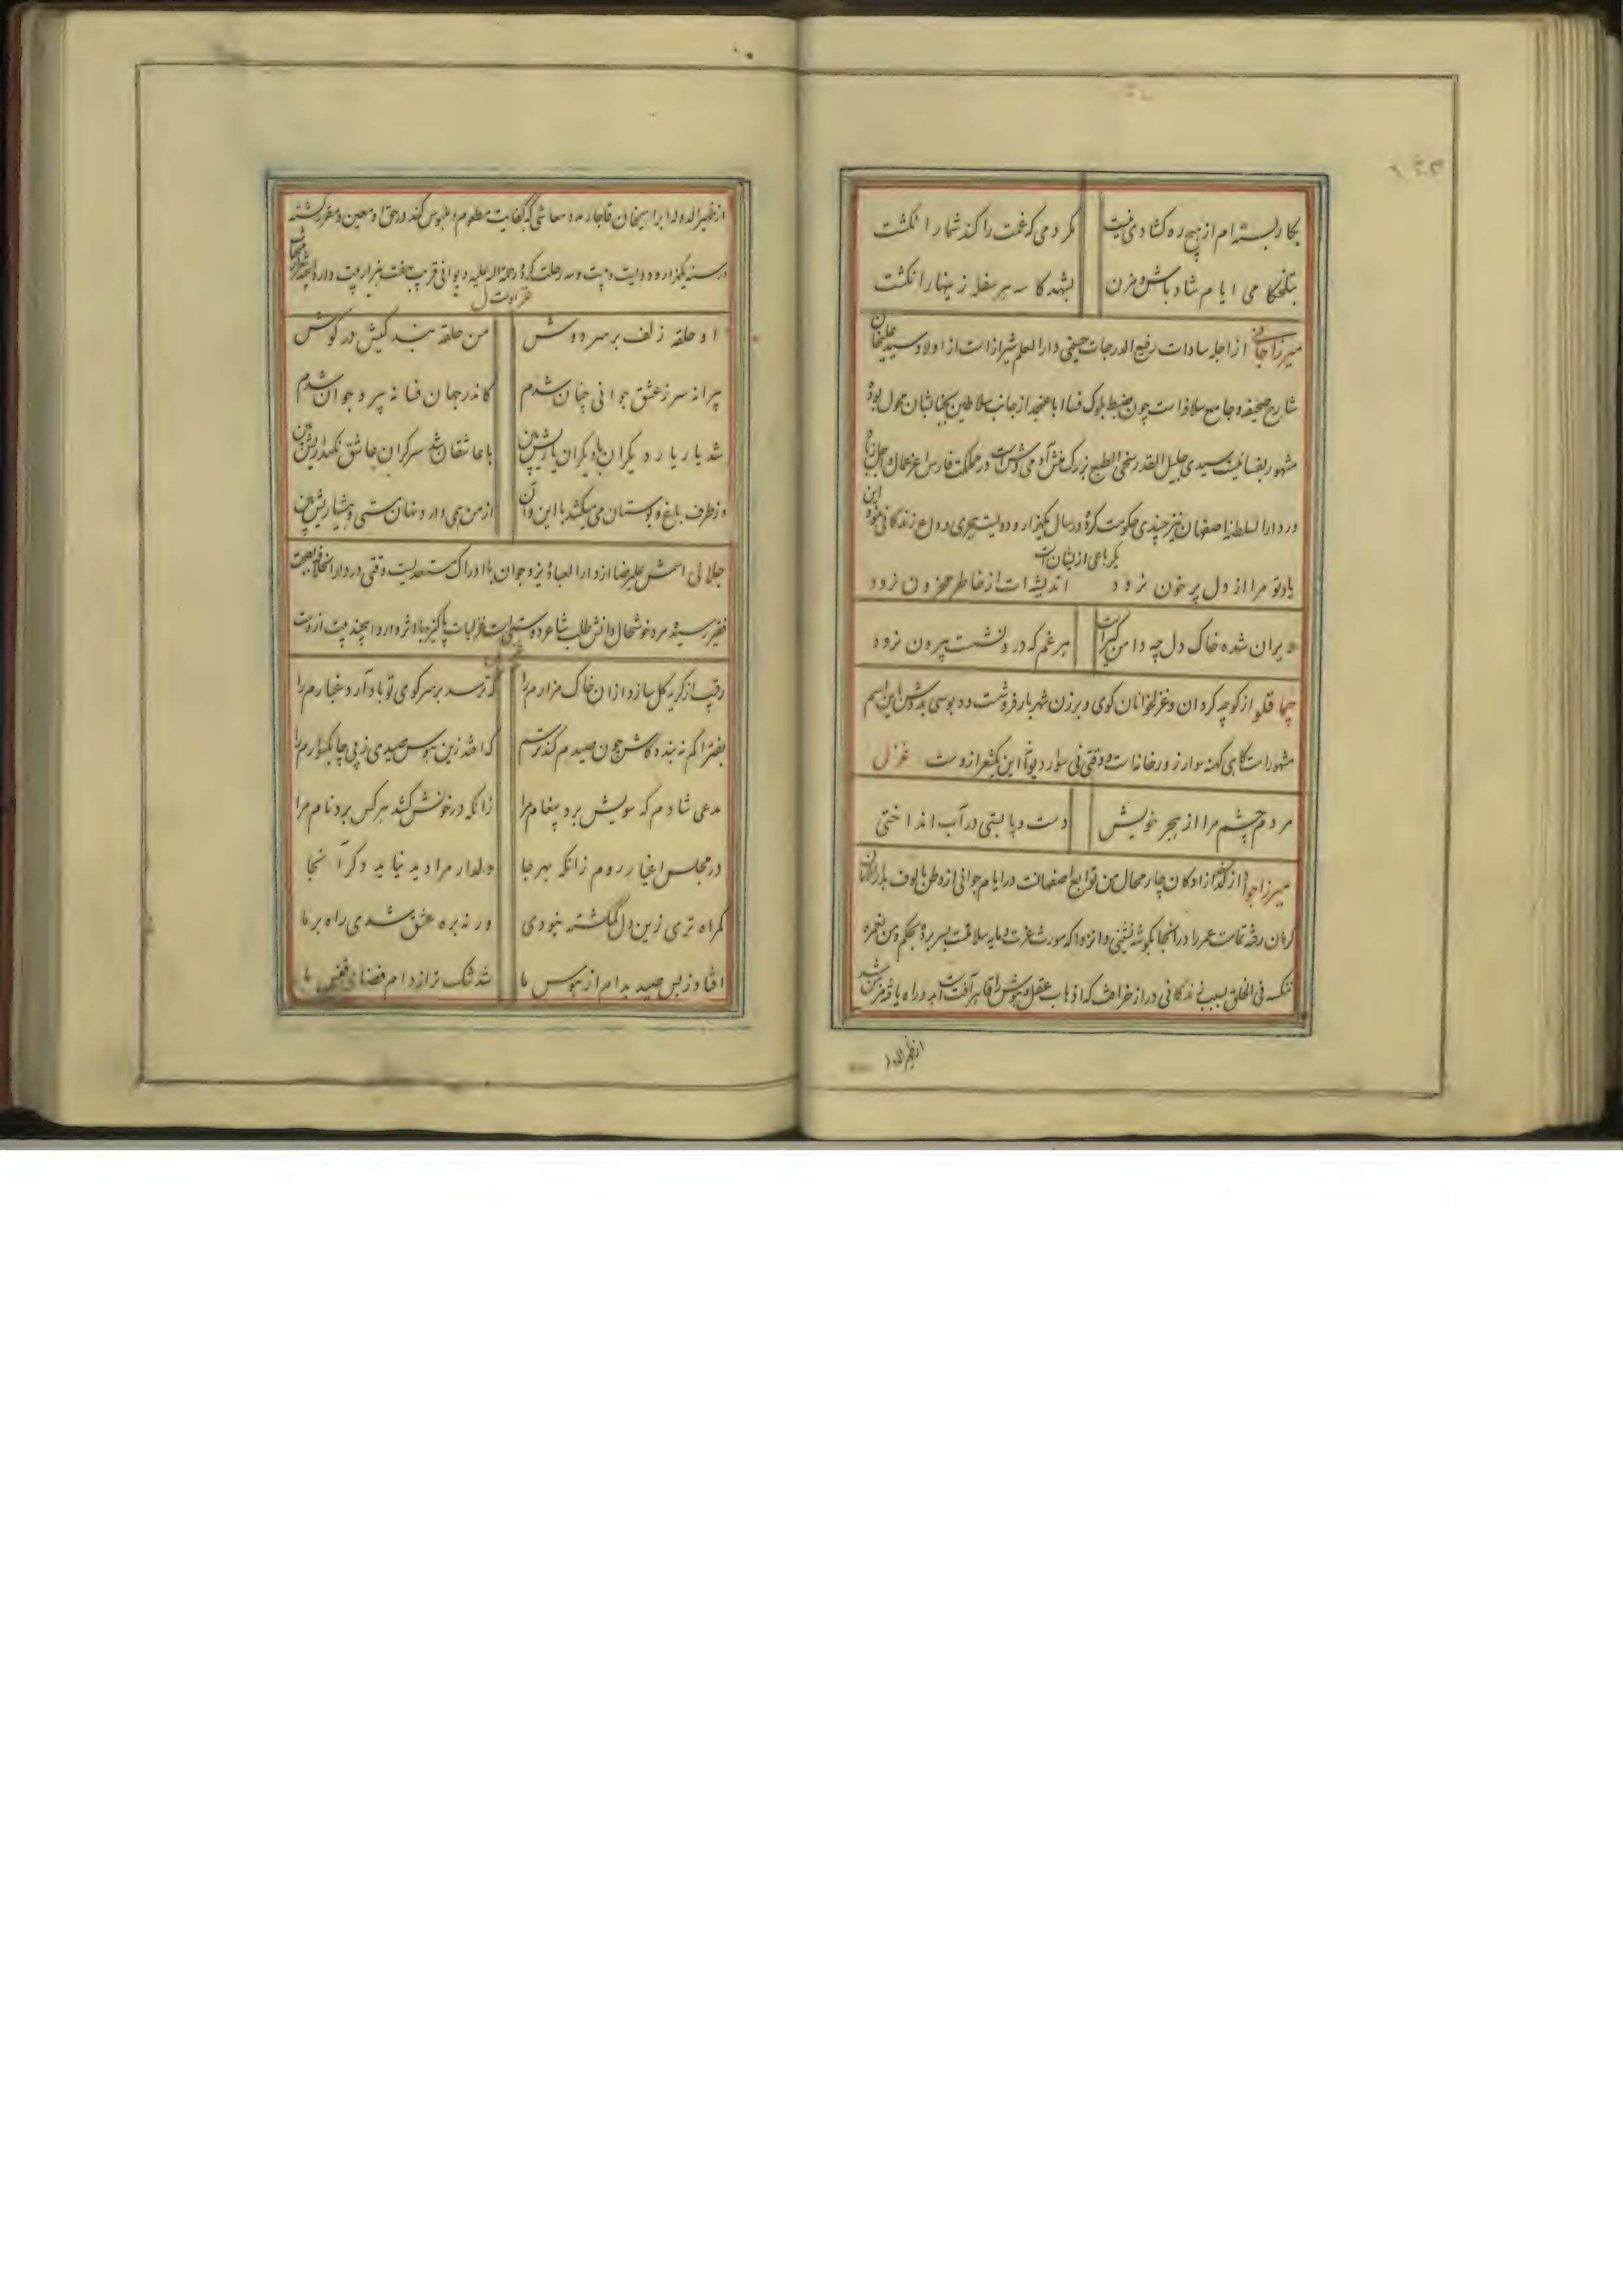 بکار بسته ام از هیچ ره کشادی نیست
مکر دمی که غمت را کند شمار انکشت
بتلخکامی ایام شاد باش و مزن
بشهد کاسه هر سفله زینهار انکشت
میرزا جانی از اجله سادات رفیع الدرجات حسینی دار العلم شیراز است از اولاد سید علیخان
شارح صحیفه و جامع سلافه است چون ضبط بلوک فسا ابا عنجد از جانب سلاطین بجنابشان محول بوده
مشهور بفسائیست سیدی جلیل القدر سخی الطبع بزرک منش آدمی وش است در مملکت فارس
در دار السلطنه اصفهان نیز چندی حکومت کرده در سال یکهزار و دویست هجری وداع زندکانی نمود این
یکرباعی از ایشان است
یاد تو مرا از دل پر خون نرود
اندیشه ات از خاطر محزون نرود
ویران شده خاک دل چه دامن کیر است
هر غم که در و نشست بیرون نرود
از کوچه کردان و غزلخوانان کوی و برزن شهر بارفروش است باین اسم
مشهور است کاهی کهنه سوار زورخانه است و وقتی نی سوار این یکشعر از وست غزل
مردم چشم مرا از هجر خویش
دست و پا بستی در آب انداختی
میرزا جواد از چار محال من توابع اصفهانست در ایام جوانی از وطن مالوف بدار الامان
کرمان رفته تمامت عمر را در آنجا بکوشه نشینی و انزوا که مورث عزت و مایه سلامت بسر برده بحکم و من نعمره
ننکسه فی الخلق بسبب زندکانی دراز خرافت که اذهاب عقل و هوش را آفت است
از ظهیر الدوله
از ظهیر الدوله ابراهیمخان قاجار مدد معاشی که کفایت مطعوم و ملبوس کند در حق او معین و مقرر کشته
در سنه یکهزار و دویست و بیست و سه رحلت کرده رحمة الله علیه دیوانی قریب بهفت هزار بیت دارد
غزل
او حلقه زلف بر سر دوش
من حلقه بندکیش در کوش
پیرانه سر ز عشق جوانی چنان شدم
کاندر جهان فسانه پیر و جوان شدم
شد یار یار دیکران با دیکران یاریش بین
با عاشقان شد سرکران عاشق نکهداریش بین
وز طرف باغ و بوستان می میکشد با این و آن
از من همی دارد نهان مستی و هشیاریش بین
جلالی اسمش علیرضا از دار العباده یزد جوان با ادراک مستعدیست وقتی در دار الخلافه بصحبت
فقیر رسیده مرد خوشحال دانش طلب شاعر دوستی است غزلیات پاکیزه با اثر دارد این چند بیت از وست
رقیب از کریه کل سازد از ان خاک مزارم را
که ترسد بر سر کوی تو باد آرد غبارم را
بفتراکم نه بندد کاش چون صیدم کند ترسم
که افتد زین هوس صیدی ز پی چابکسوارم را
مدعی شادم که سویش برد پیغام مرا
زانکه در خونش کشد هر کس برد نام مرا
در مجلس اغیار روم زانکه بهر جا
دلدار مرا دید نیاید دکر آنجا
کمراه تری زین دل کمکشته نبودی
ور نه بره عشق شدی راهبر ما
افتاد ز بس صید بدام از هوس ما
شد تنک تر از دام فضای قفس ما